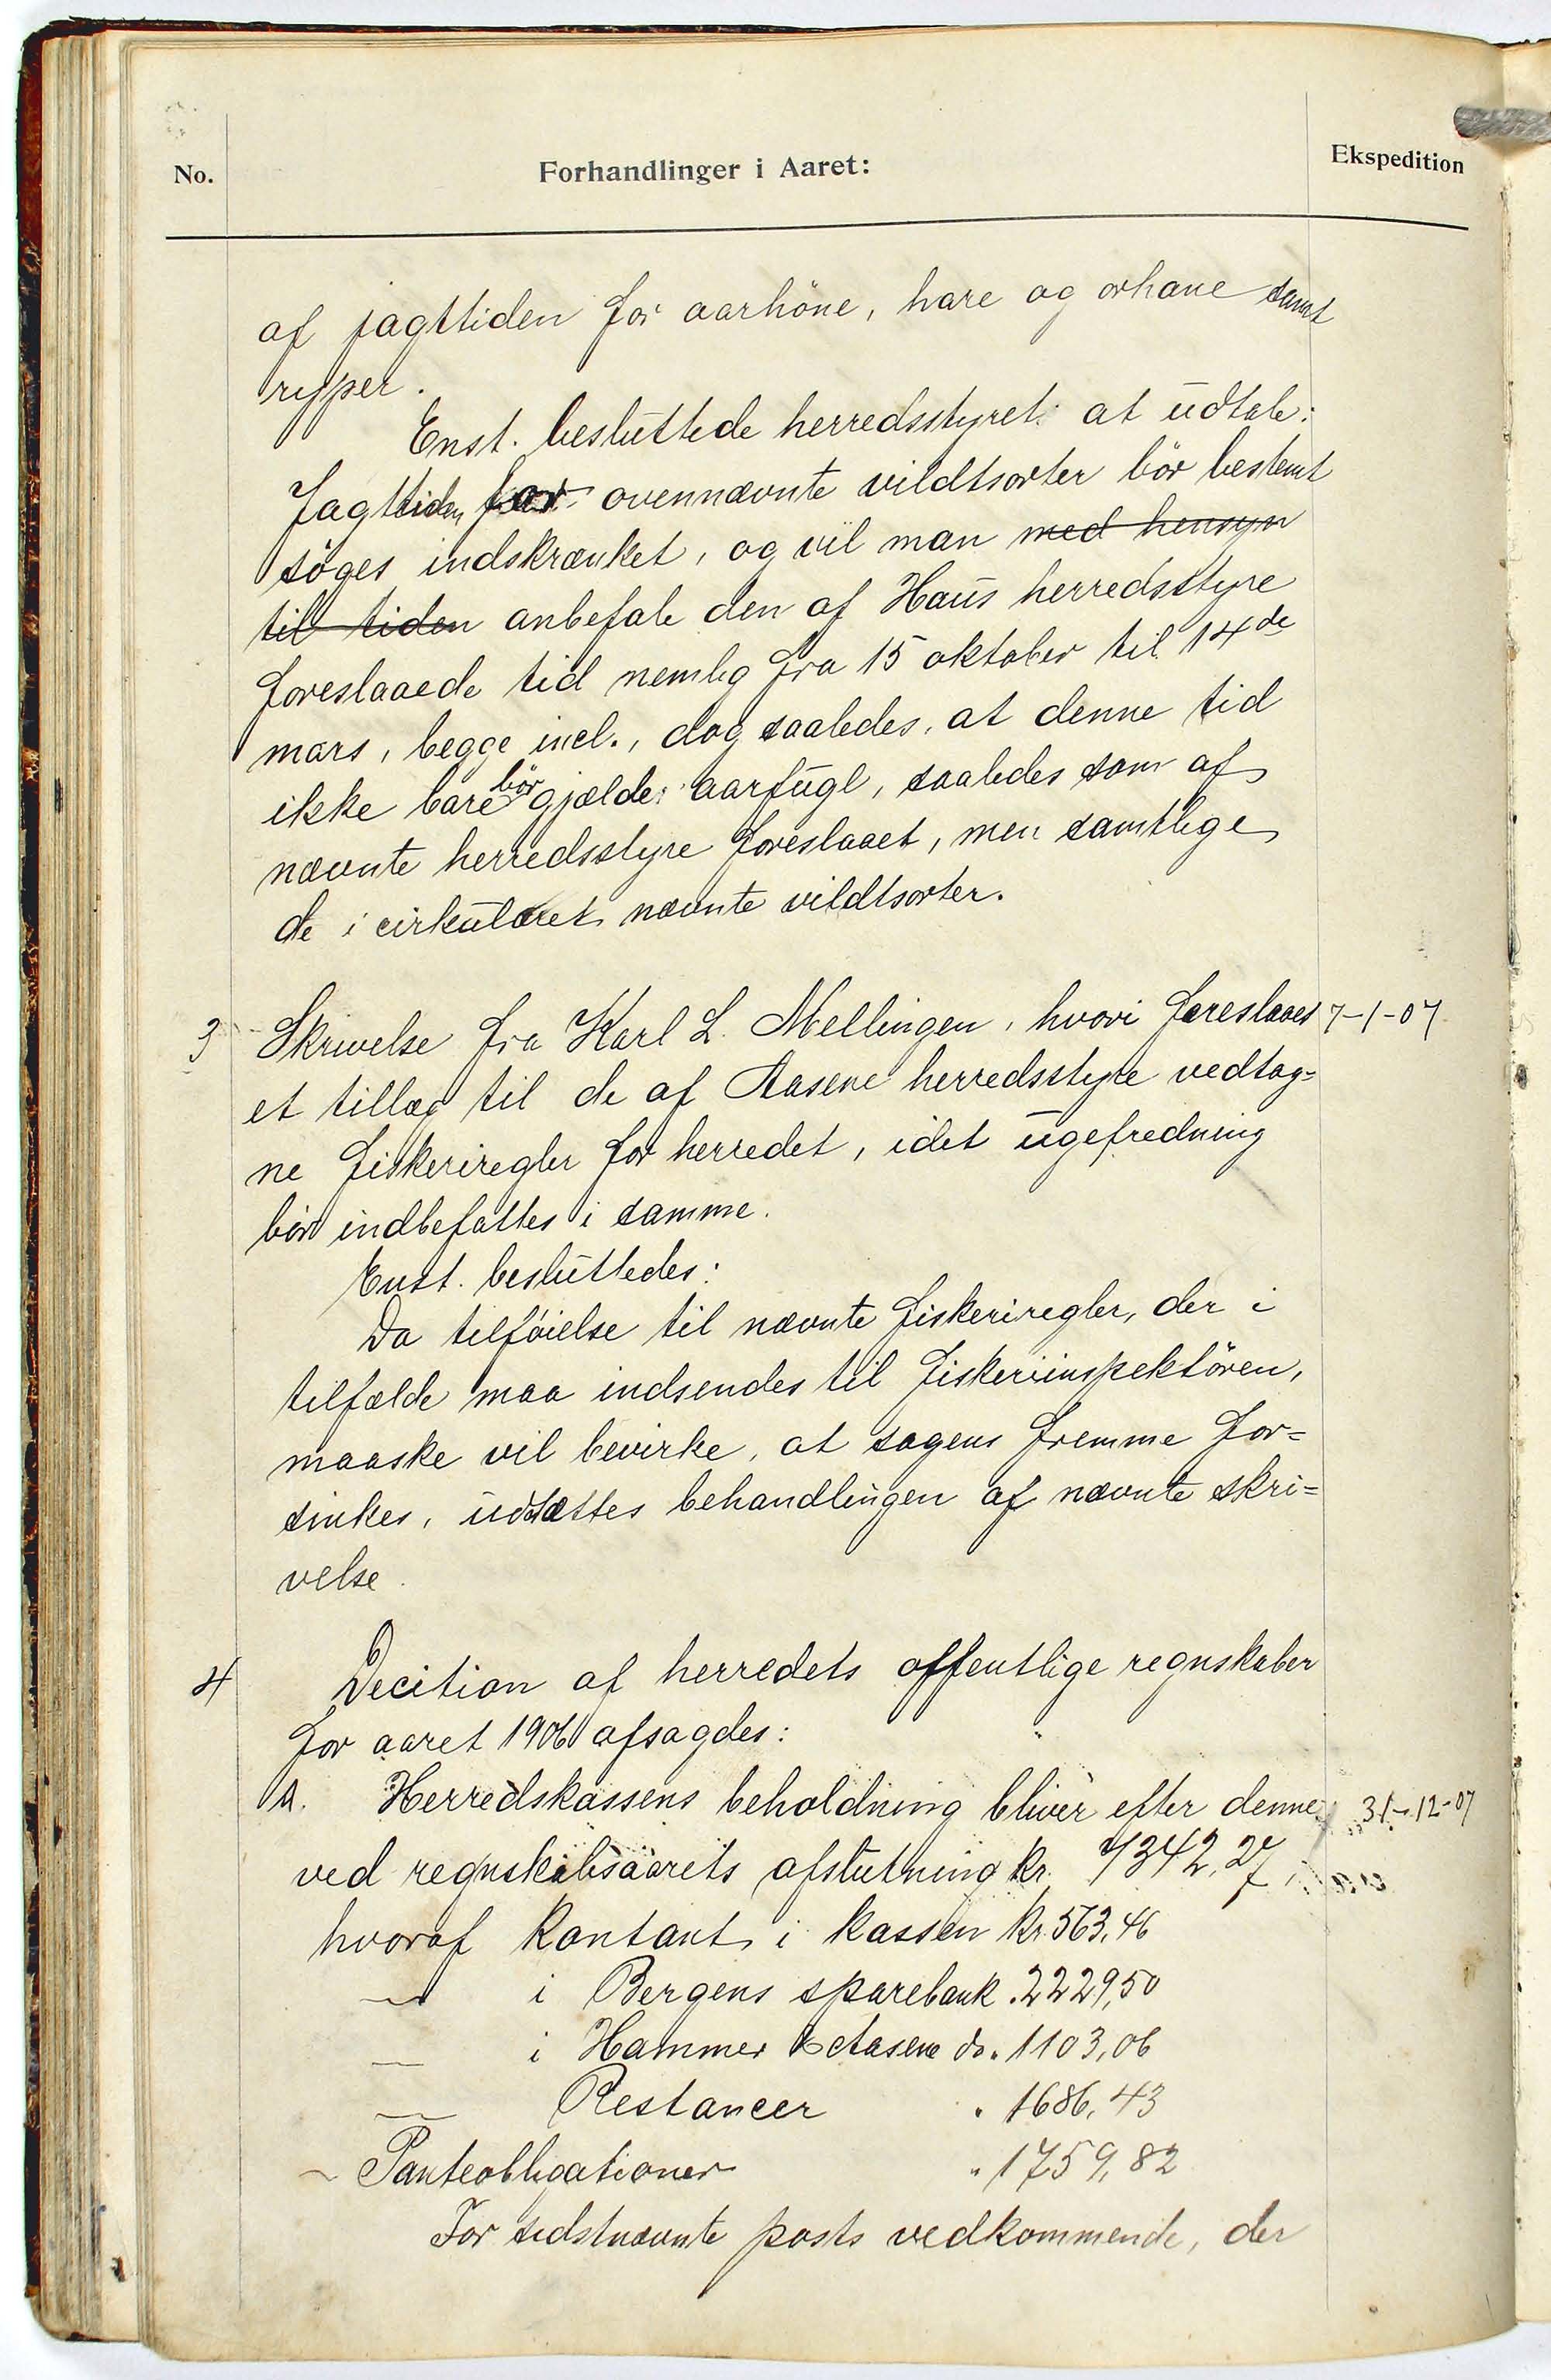 No.
Forhandlinger i Aaret:
Ekspedition
af jagttiden for aarhöne, hare og orhane samt
ryper.
Enst. besluttede herredsstyret at udtale:
Jagttiden for ovennævnte vildtsorter bör bestemt
söges indskrænket, og vil man med hensyn
til tiden anbefale den af Haus herredsstyre
foreslaaede tid nemlig fra 15 oktober til 14de
mars, begge incl., dog saaledes, at denne tid
ikke bare bör gjælde aarfugl, saaledes som af
nævnte herredsstyre foreslaaet, men samtlige
de i cirkulæret nævnte vildtsorter.
3 Skrivelse fra Karl L. Mellingen, hvori foreslaaes 7-1-07
et tillæg til de af Aasene herredsstyre vedtag=
ne fiskeriregler for herredet, idet ugefredning
bör indbefattes i samme.
Enst. besluttedes:
Da tilföielse til nævnte fiskeriregler, der i
tilfælde maa indsendes til fiskeriinspektören,
maaske vil bevirke, at sagens fremme for=
sinkes, udsættes behandlingen af nævnte skri=
velse.
4 Decition af herredets offentlige regnskaber
for aaret 1906 afsagdes:
A. Herredskassens beholdning bliver efter denne 31-12-07
ved regnskabsaarets afslutning kr. 7342,27
hvoraf kontant i kassen kr. 563,46
— i Bergens sparebank . 2229,50
— i Hammer & Aasene do. 1103,06
— Restancer " 1686,43
— Panteobligationer " 1759,82
For sidstnævnte posts vedkommende, der